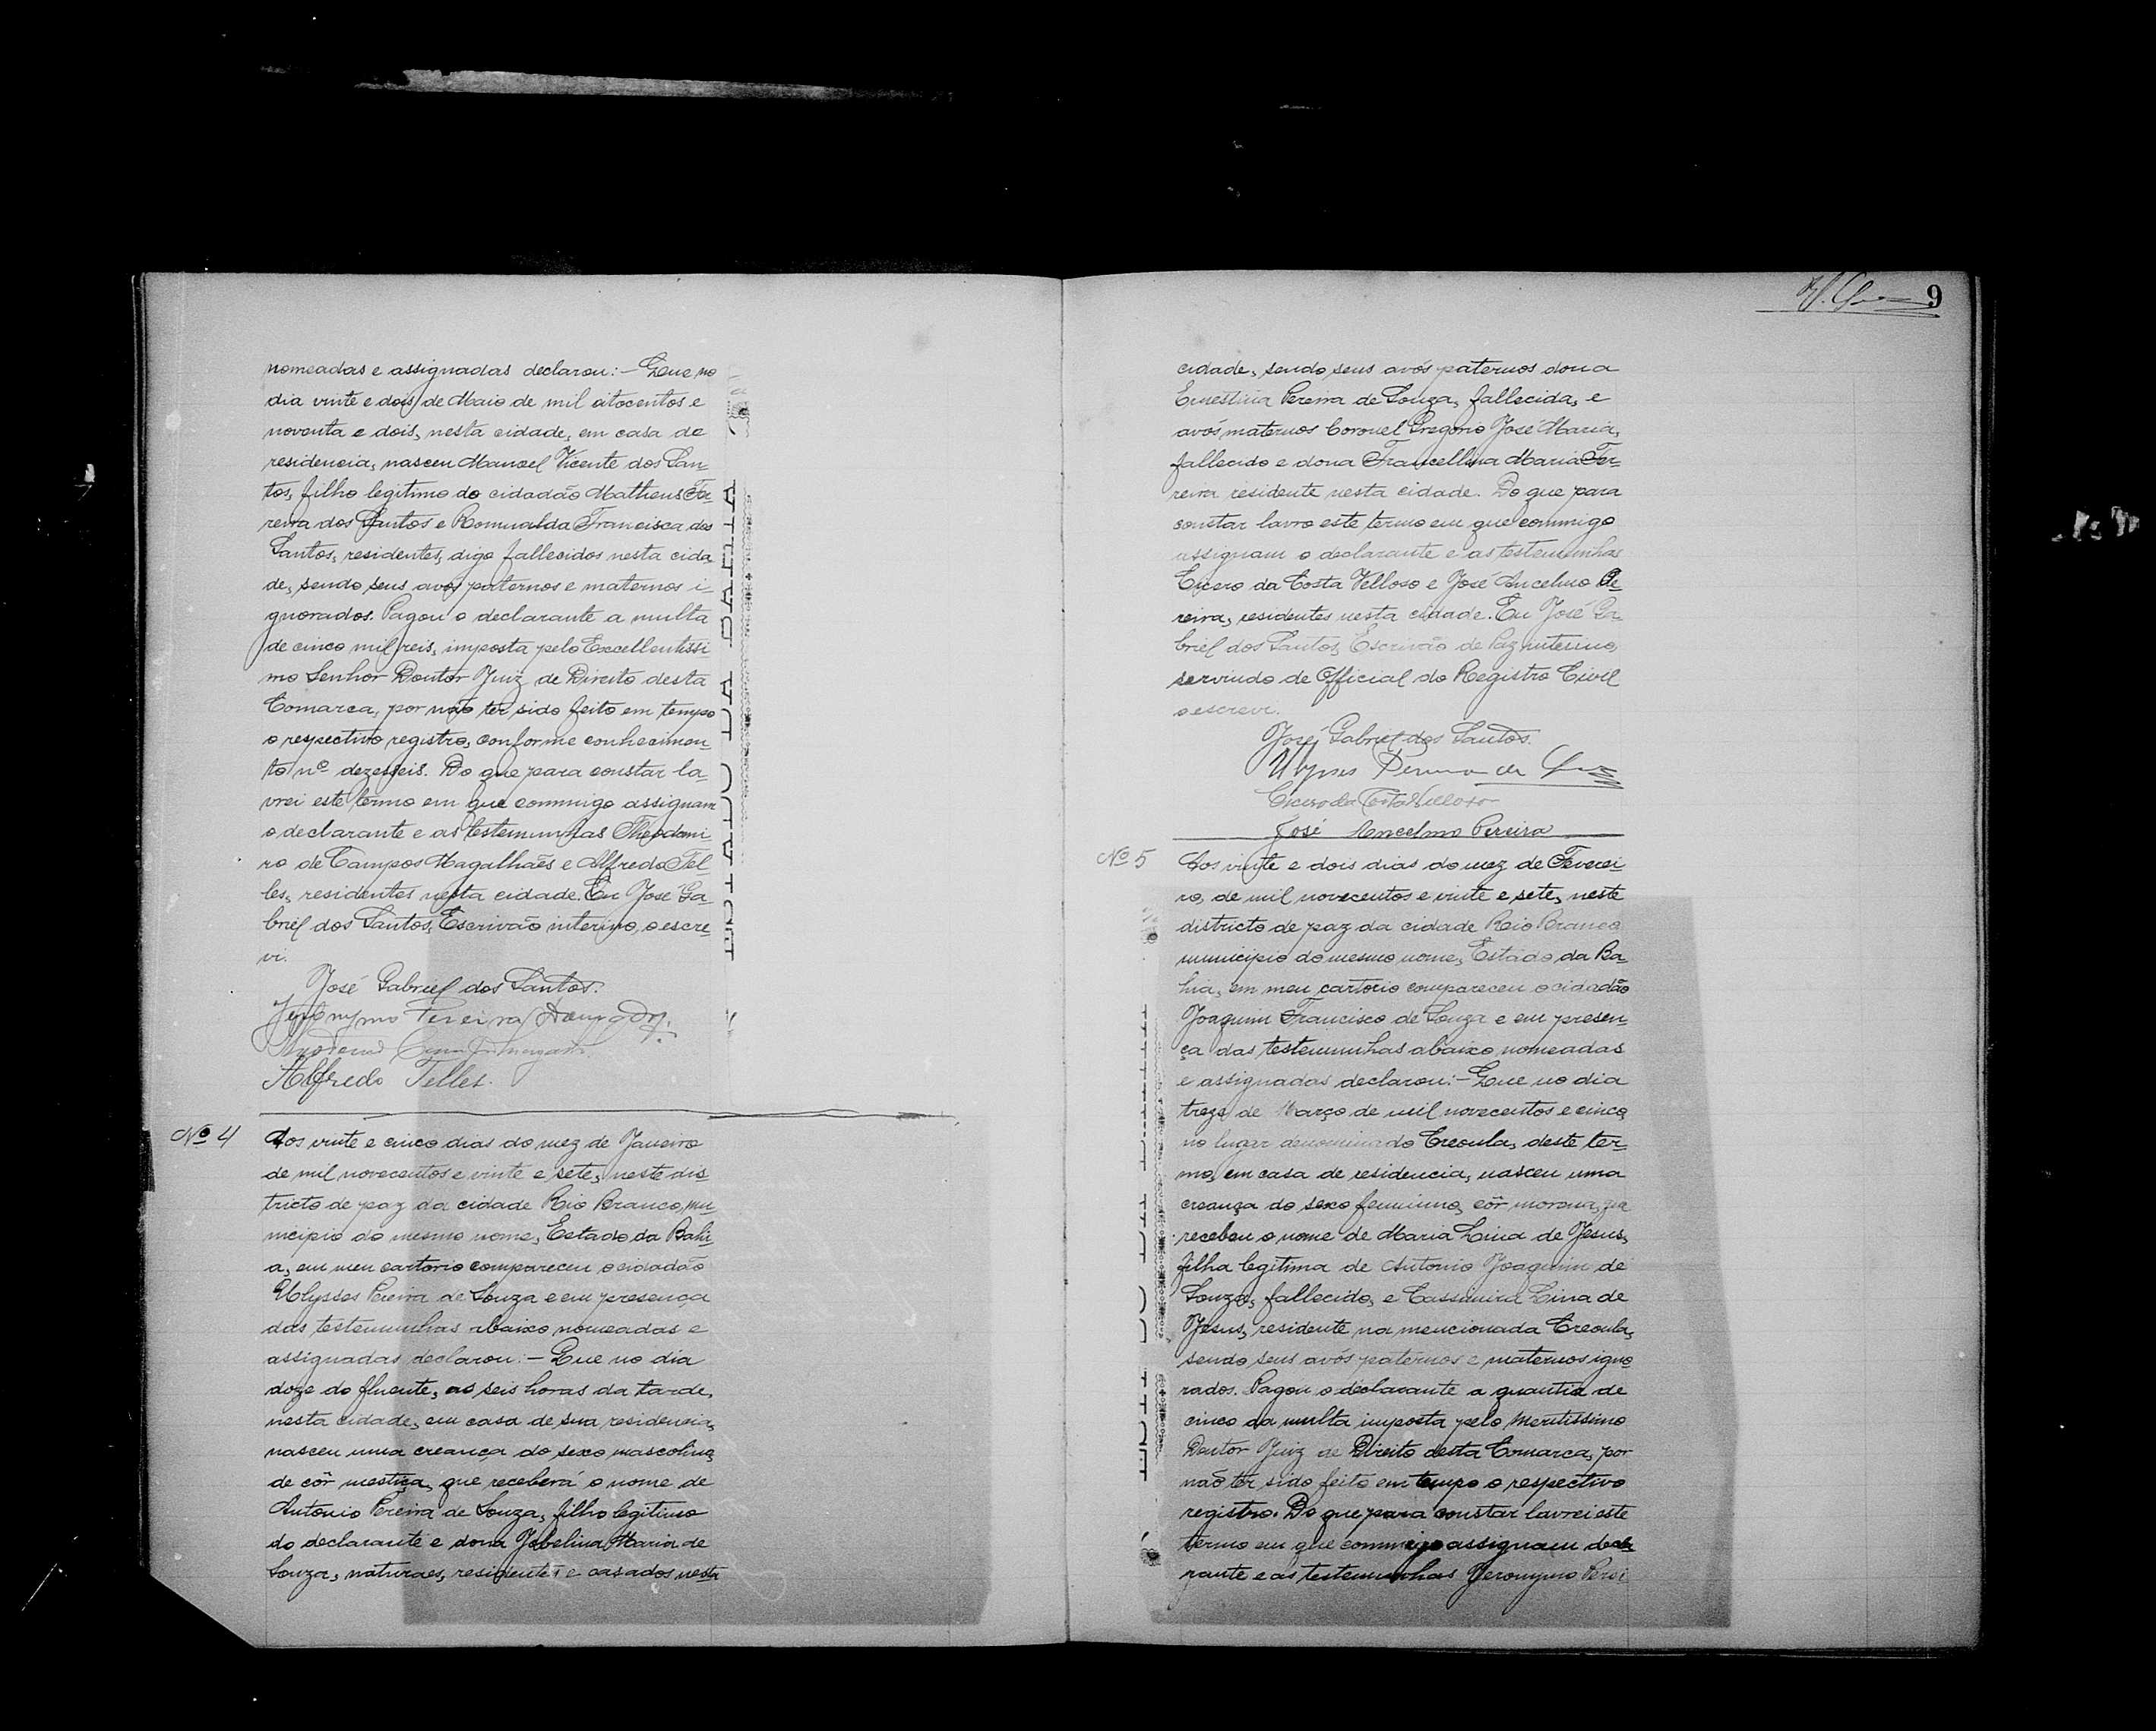 nomeadas e assignadas declarou:- Que no
dia vinte e dois de Maio de mil oitocentos e
noventa e dois, nesta cidade, em casa de
residencia, nasceu Manoel Vicente dos San-
tos, filho legitimo do cidadão Matheus Fer-
reira dos Santos e Romualda Francisca dos
Santos, residentes, digo fallecidos nesta cida
de, sendo seus avós paternos e maternos i-
gnorados. Pagou o declarante a multa
de cinco mil reis, imposta pelo Excellentissi-
mo Senhor Doutor Juiz de Direito desta
Comarca, por não ter sido feito em tempo
o respectivo registro, conforme conhecimen-
to nº dezesseis. Do que para constar la-
vrei este termo em que commigo assignam
o declarante e as testemunhas Theodomi-
ro de Campos Magalhães e Alfredo Tel-
les, residentes nesta cidade. Eu José Ga-
briel dos Santos, Escrivão interino, o escre-
vi.
José Gabriel dos Santos.
Jeronymo Pereira
Alfredo Telles.
Nº 4 Aos vinte e cinco dias do mez de Janeiro
de mil novecentos e vinte e sete, neste dis-
tricto de paz da cidade Rio Branco, mu-
nicipio do mesmo nome, Estado da Bahi-
a, em meu cartorio compareceu o cidadão
Ulysses Pereira de Souza e em presença
das testemunhas abaixo nomeadas e
assignadas declarou:- Que no dia
doze do fluente, as seis horas da tarde,
nesta cidade, em casa de sua residencia,
nasceu uma creança do sexo mascolino,
de côr mestiça, que receberá o nome de
Antonio Pereira de Souza, filho legitimo
do declarante e dona Jobelina Maria de
Souza, naturaes, residentes e casados nesta
9
cidade, sendo seus avós paternos dona
Ernestina Pereira de Souza, fallecida, e
avós maternos Coronel Gregorio José Maria,
fallecido e dona Francellina Maria Fer-
reira residente nesta cidade. Do que para
constar lavro este termo em que commigo
assignam o declarante e as testemunhas
Cicero da Costa Velloso e José Ancelmo Pe-
reira, residentes nesta cidade. Eu José Ga-
briel dos Santos, Escrivão de Paz interino,
servindo de Official do Registro Civil
o escrevi.
José Gabriel dos Santos.
Ulysses Pereira de Souza
Cicero da Costa Velloso
José Ancelmo Pereira
Nº 5 Aos vinte e dois dias do mez de Feverei-
ro, de mil novecentos e vinte e sete, neste
districto de paz da cidade Rio Branco
municipio do mesmo nome, Estado da Ba-
hia, em meu cartorio compareceu o cidadão
Joaquim Francisco de Souza e em presen-
ça das testemunhas abaixo nomeadas
e assignadas declarou:- Que no dia
treze de Março de mil novecentos e cinco,
no lugar denominado Creoula, deste ter-
mo, em casa de residencia, nasceu uma
creança do sexo feminino, côr morena, que
recebeu o nome de Maria Lina de Jesus,
filha legitima de Antonio Joaquim de
Souza, fallecido, e Cassimira Lina de
Jesus, residente na mencionada Creoula,
sendo seus avós paternos e maternos igno
rados. Pagou o declarante a quantia de
cinco da multa imposta pelo Meritissimo
Doutor Juiz de Direito desta Comarca, por
não ter sido feito em tempo o respectivo
registro. Do que para constar lavrei este
termo em que commigo assignam decla
rante e as testemunhas Jeronymo Perei